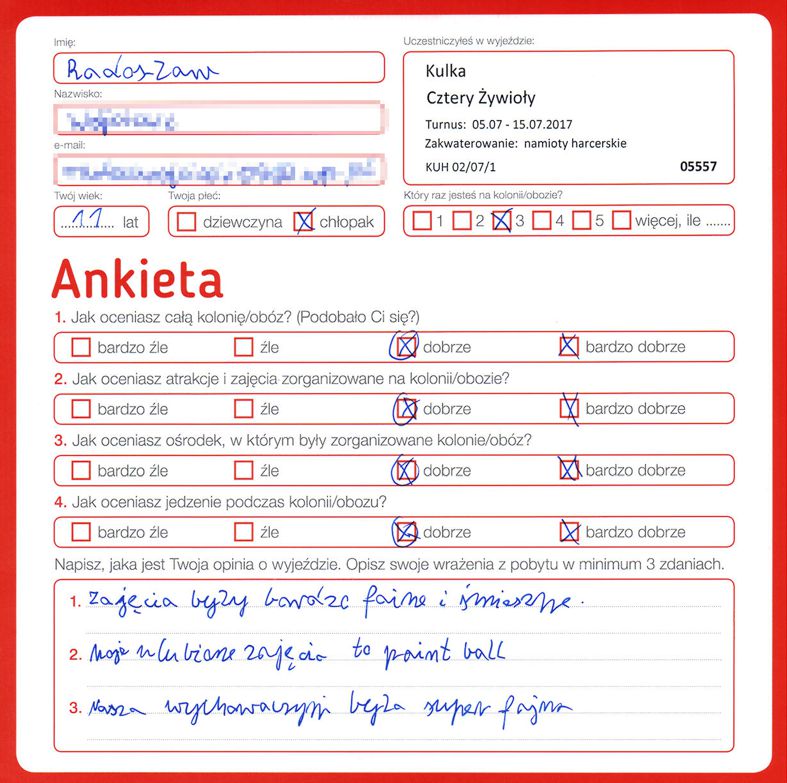 Imię:
Radoszaw
Nazwisko:
e-mail:
Twój wiek:
11 lat
Twoja płeć:
dziewczyna chłopak
Uczestniczyłeś w wyjeździe:
Kulka
Cztery Żywioły
Turnus: 05.07 - 15.07.2017
Zakwaterowanie: namioty harcerskie
KUH 02/07/1 05557
Który raz jesteś na kolonii/obozie?
1 2 3 4 5 więcej, ile .......
Ankieta
1. Jak oceniasz całą kolonię/obóz? (Podobało Ci się?)
bardzo źle źle dobrze bardzo dobrze
2. Jak oceniasz atrakcje i zajęcia zorganizowane na kolonii/obozie?
bardzo źle źle dobrze bardzo dobrze
3. Jak oceniasz ośrodek, w którym były zorganizowane kolonie/obóz?
bardzo źle źle dobrze bardzo dobrze
4. Jak oceniasz jedzenie podczas kolonii/obozu?
bardzo źle źle dobrze bardzo dobrze
Napisz, jaka jest Twoja opinia o wyjeździe. Opisz swoje wrażenia z pobytu w minimum 3 zdaniach.
1. zajęcia były bardzo fajne i śmieszne.
2. Moje ulubione zajęcia to paint ball
3. Nasza była super fajna